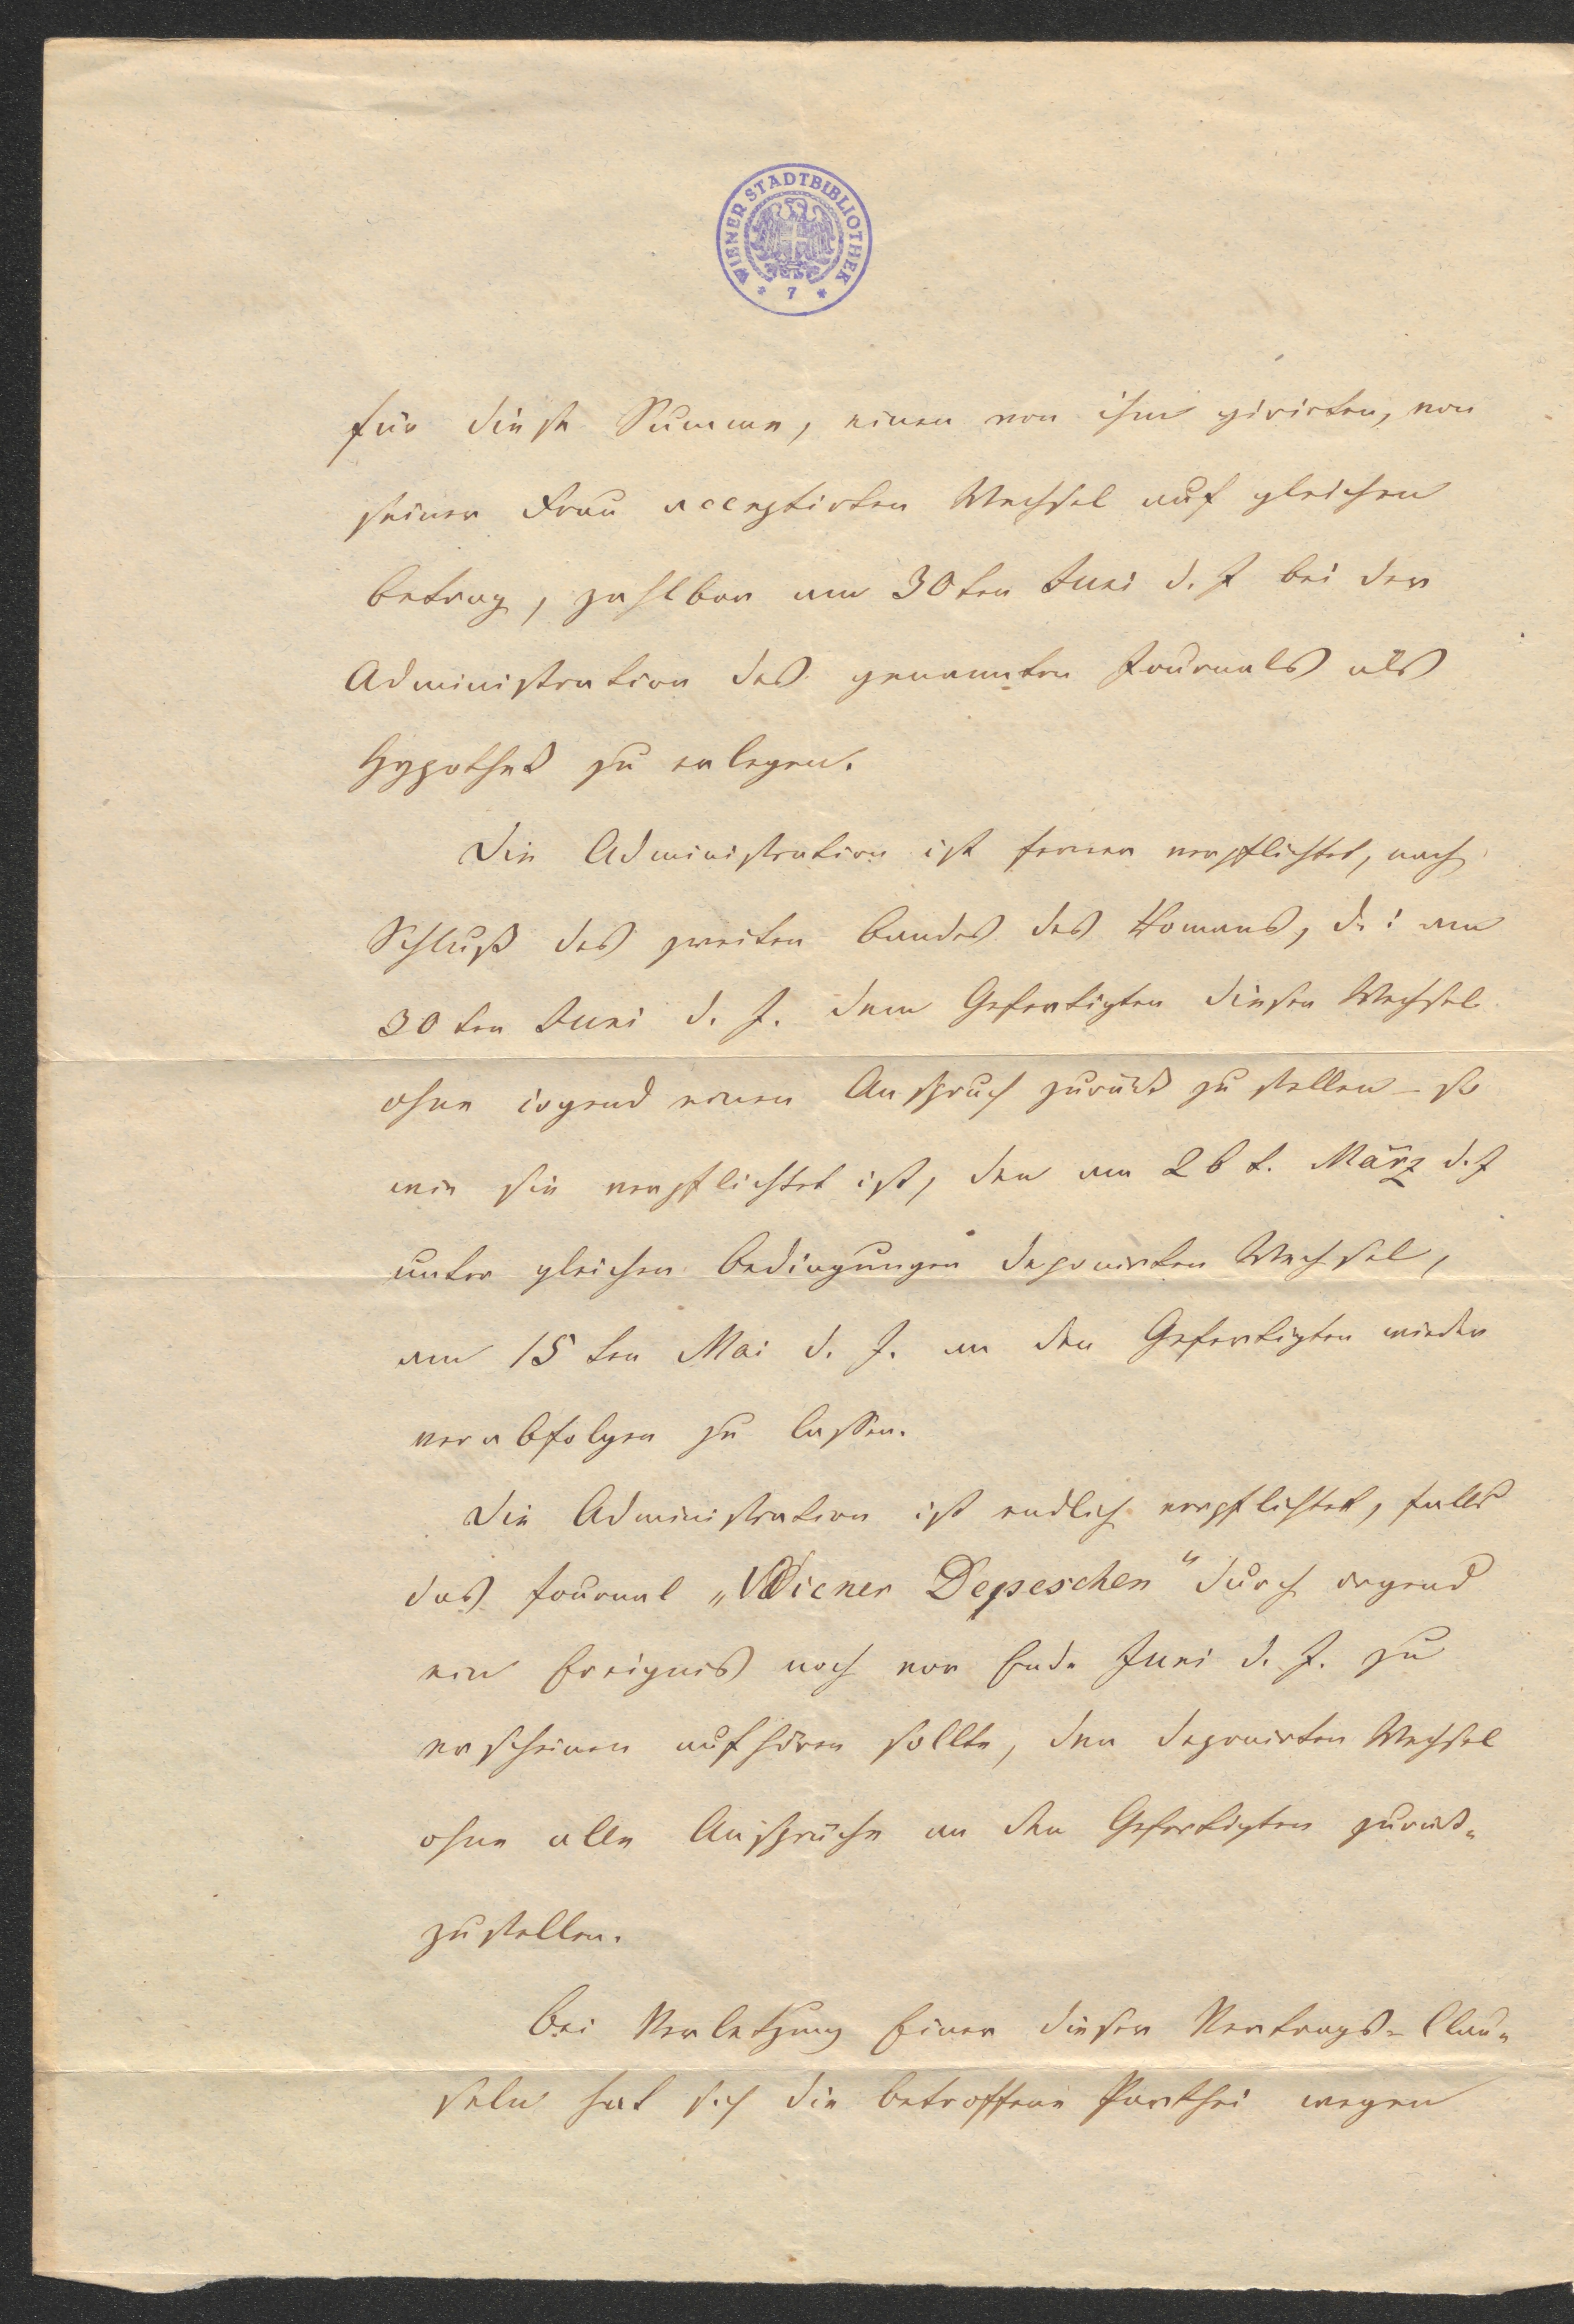 WIENER STADTBIBLIOTHEK
* 7 *
für diese Summe, einen von ihm girirten, von
seiner Frau acceptirten Wechsel auf gleichen
Betrag, zahlbar am 30ten Juni d. J bei der
Administration des genannten Journals als
Hypothek zu erlegen.
Die Administration ist ferner verpflichtet, nach
Schluß des zweiten Bandes des Romans, d. i am
30ten Juni d. J. dem Gefertigten diesen Wechsel
ohne irgend einen Anspruch zurück zu stellen – so
wie sie verpflichtet ist, den am 26t. März d. J
unter gleichen Bedingungen deponirten Wechsel,
am 15ten Mai d. J. an den Gefertigten wieder
verabfolgen zu lassen.
Die Administration ist endlich verpflichtet, falls
das Journal „Wiener Depeschen“ durch irgend
ein Ereignis noch vor Ende Juni d. J. zu
erscheinen aufhören sollte, den deponirten Wechsel
ohne alle Ansprüche an den Gefertigten zurück-
zustellen.
Bei Verletzung Einer dieser Vertrags-Clau-
seln hat sich die betroffene Parthei wegen